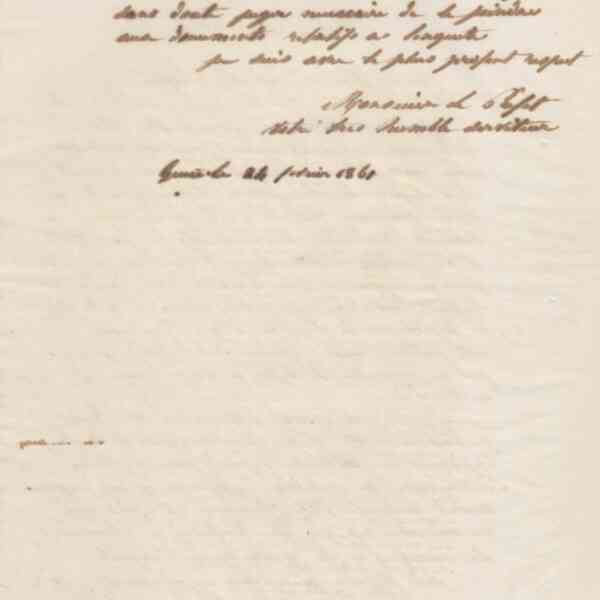 sans doute juger necessaire de le joindre
aux documents relatifs a l'enquete
je suis avec le plus profond respect
Monsieur le Prefet
votre tres humble serviteur
le 24 fevrier 1861